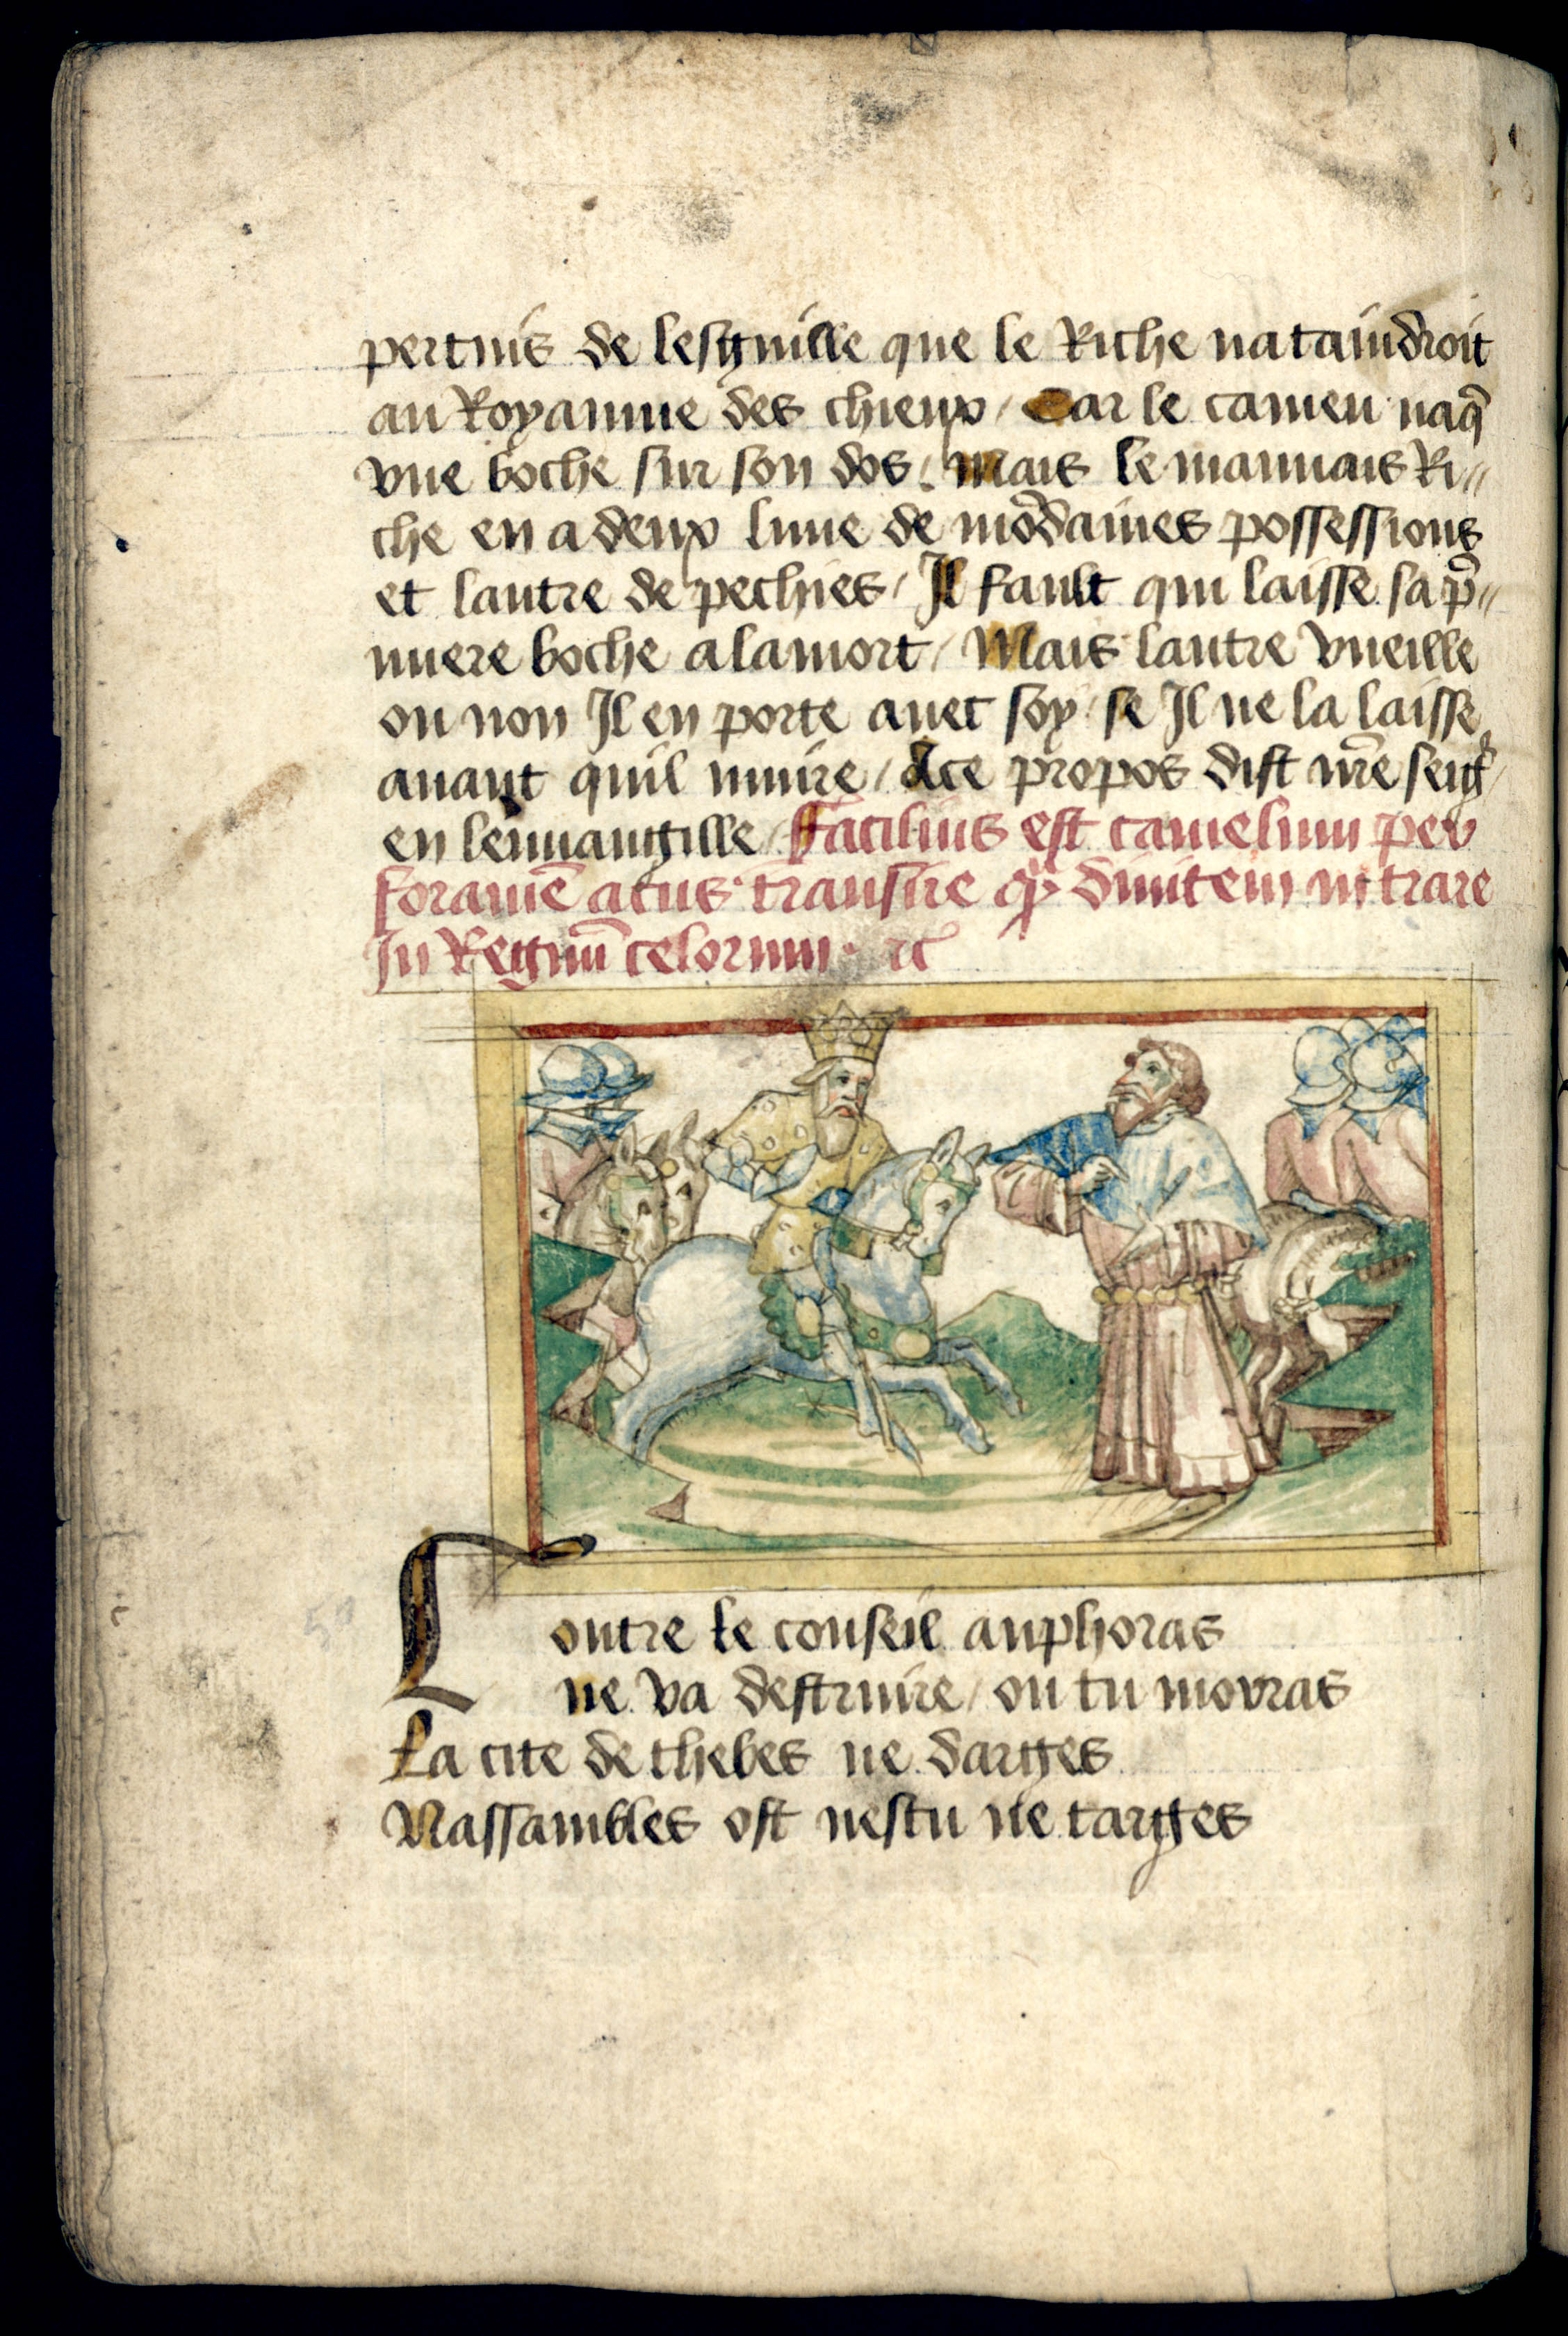 pertuis de lesguille que le Riche nataindroit
au Royaume des chieux / Car le cameu naq̃
vne boche sur son dos / Mais le mauuais Ri〃
che en a deux lune de mõdaines possessions
et lautre de pechies / Il fault qui laisse sa p̃〃
miere boche a la mort / Mais lautre vueille
ou non Il en porte auec soy / se Il ne la laisse
auant quil muire / A ce propos dist nr̃e seigr̃
en leuuangille / Facilius est camelum per
foramẽ acus transire q̃ diuitem intrare
In Regnũ celorum · ⁊c̃
L outre le conseil anphoras
ne va destruire / ou tu mouras
La cite de thebes ne darges
Nassambles ost nestu ne targes